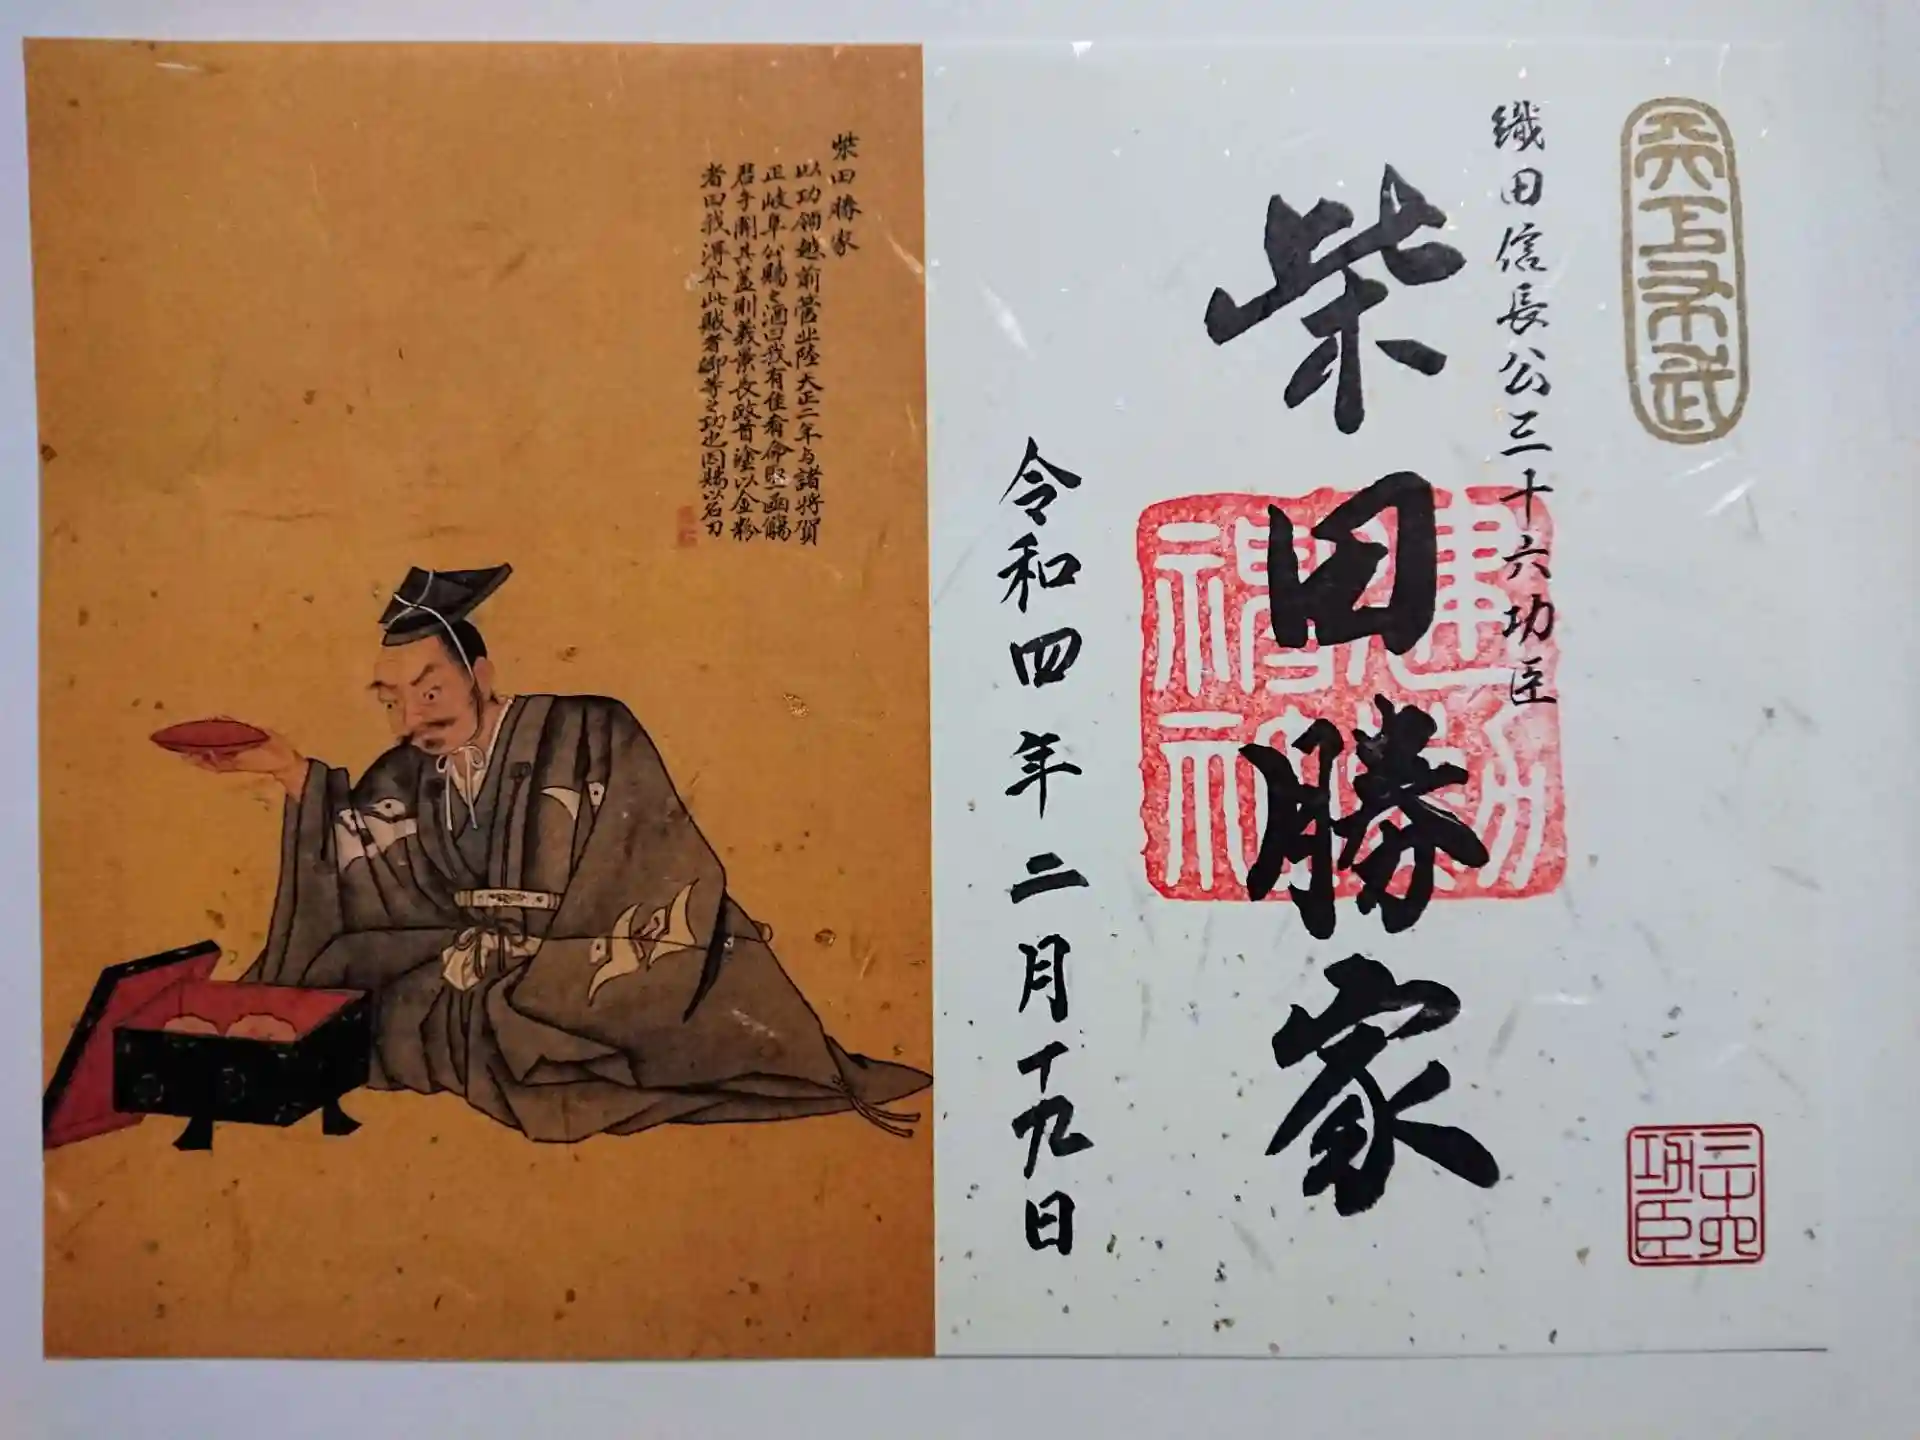 天下布武
織田信長公三十六功臣
柴田勝家
建勲神社
令和四年二月十九日
三十六功臣
柴田勝家
以功領越前管北陸大正二年与諸将賀
正岐阜公賜之酒曰我有佳肴命取一函觴
君手開其蓋則義景長政首塗以金粉
者曰我得平此賊者卿等之功也因賜以名刀